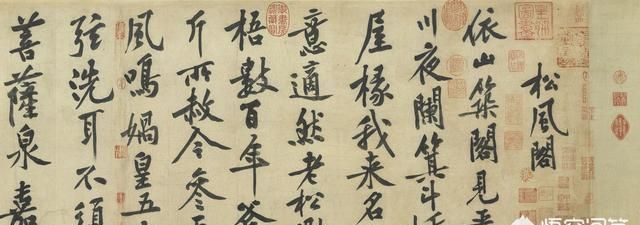 松風閣
依山築閣見平
川夜闌箕斗
屋椽我來名
意適然老松
梧數百年
斤所赦令參
風鳴媧皇五
弦洗耳不須
菩薩泉嘉
悟空问答